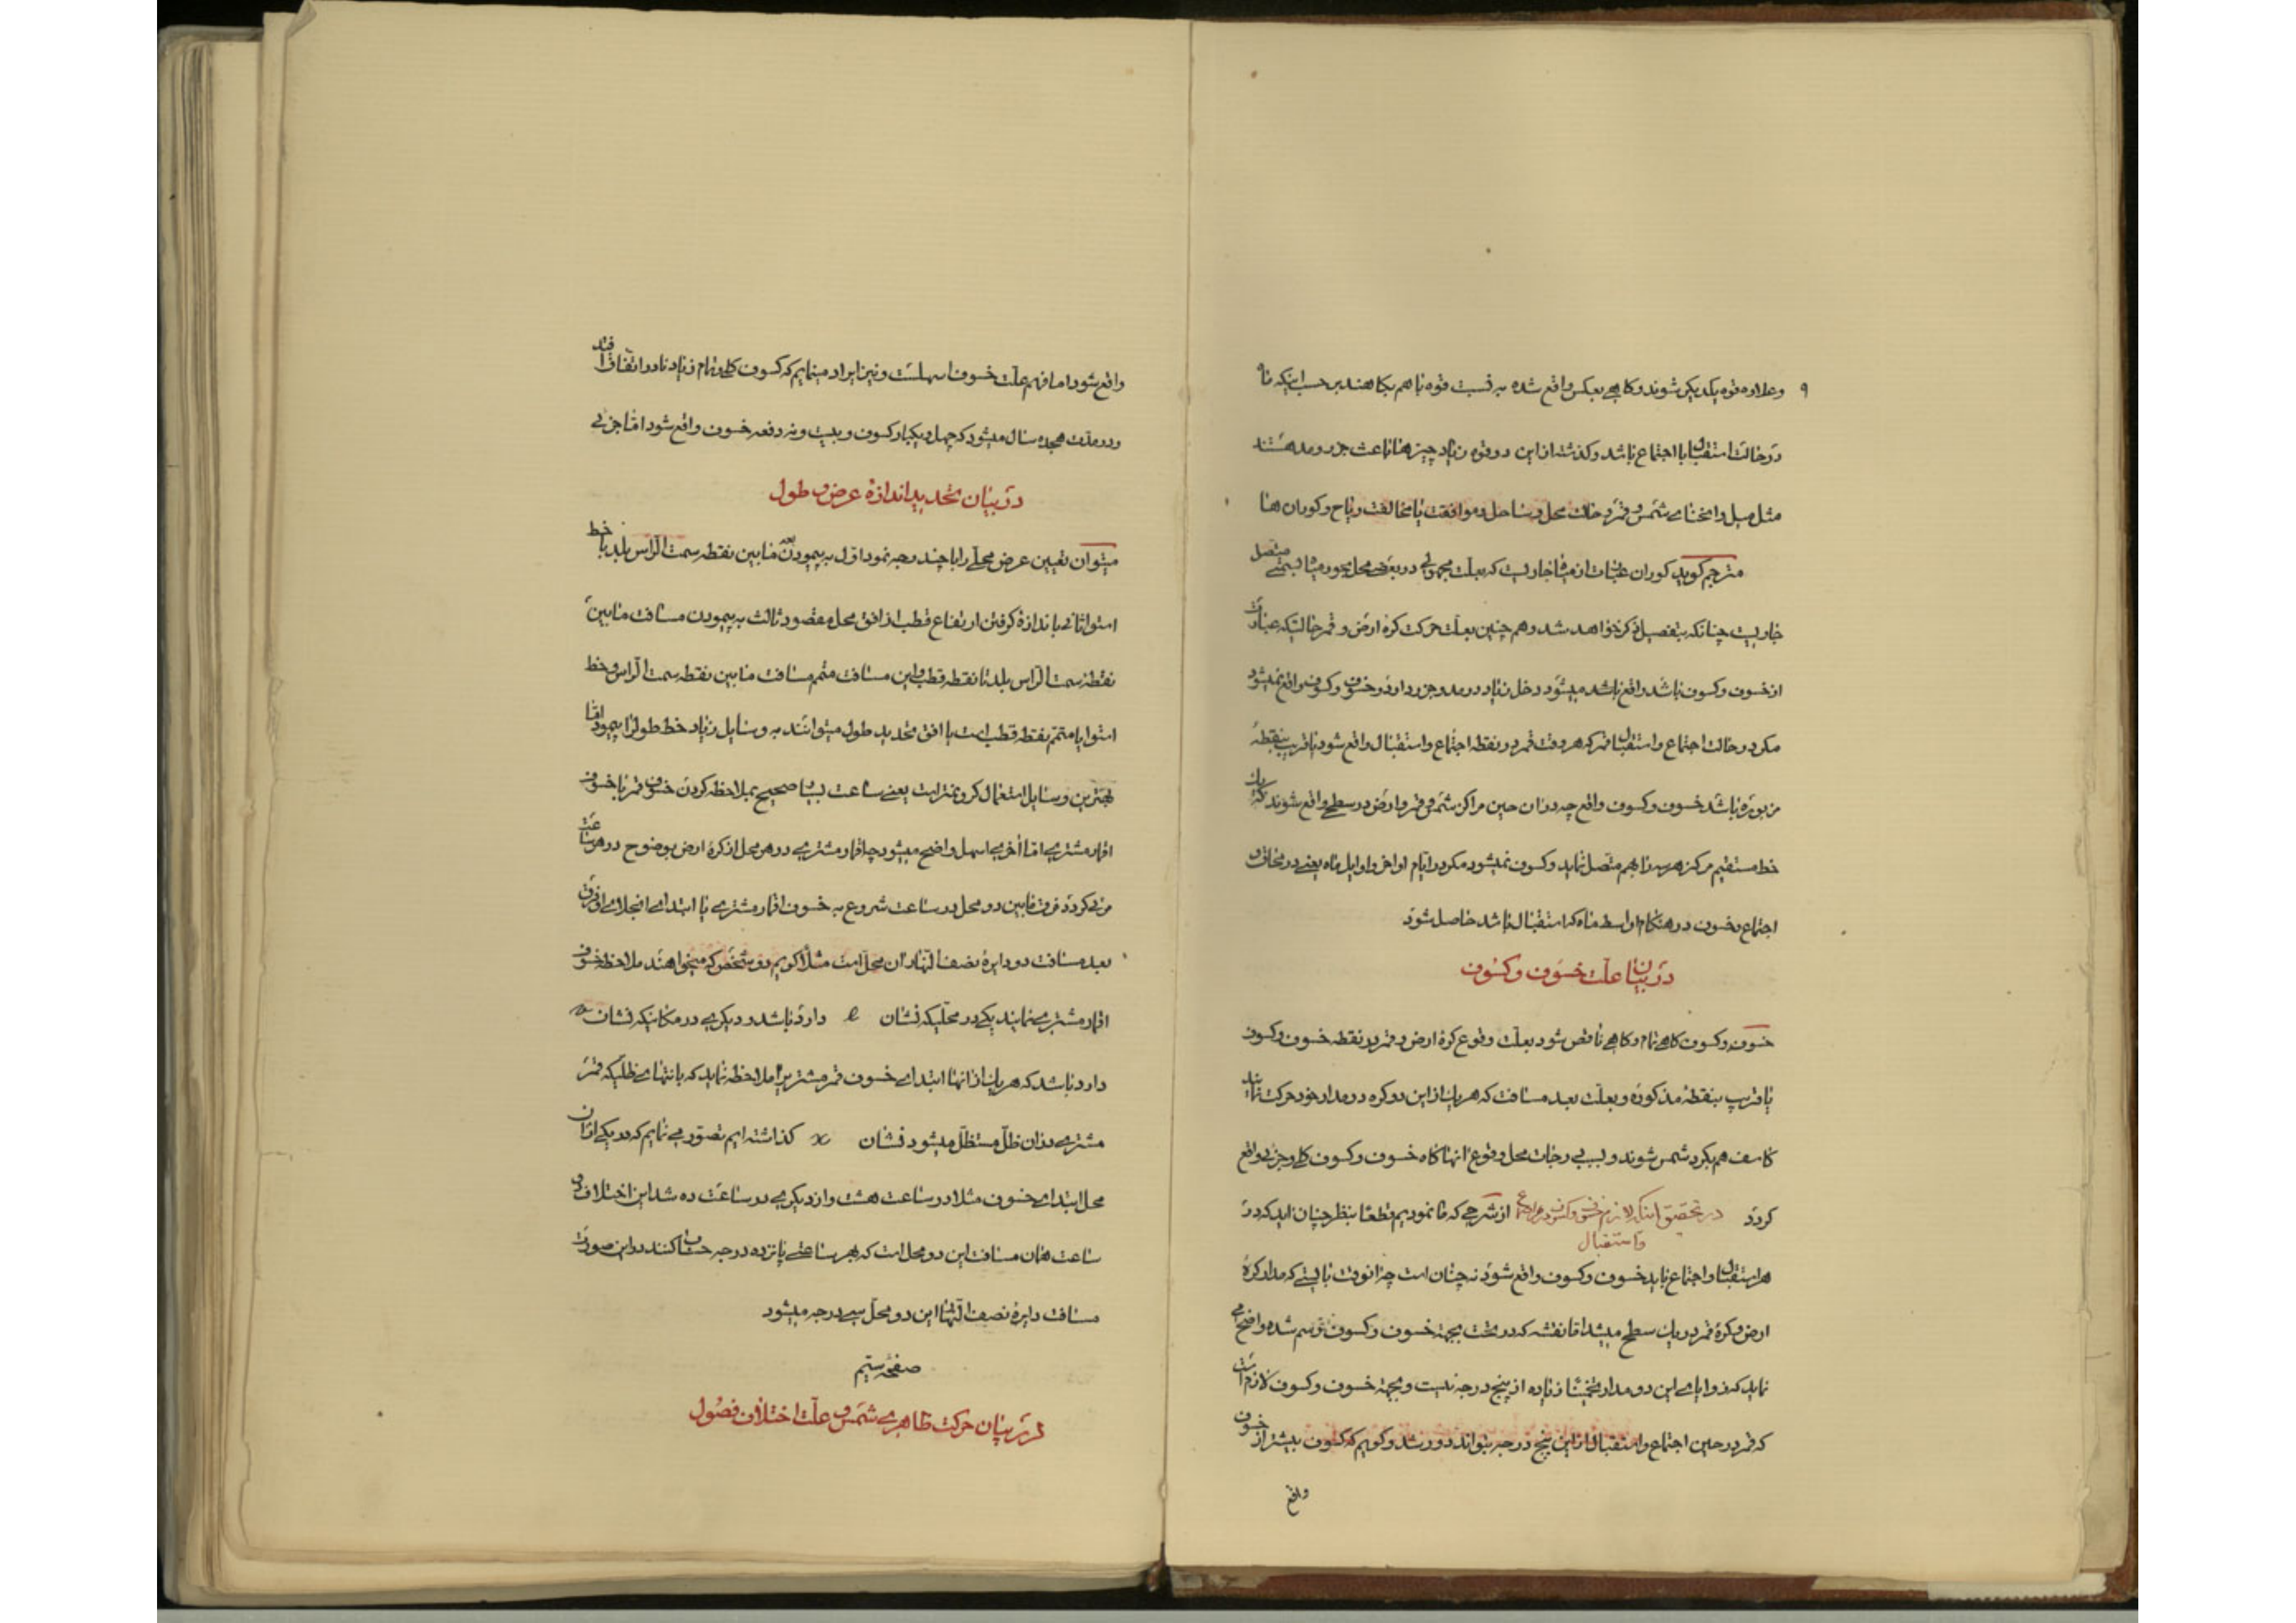 ۹
وعلاوه قوه یکدیکر شوند و کاهی بعکس واقع شده به نسبت قوه باهم بکاهند بر حسب اینکه تا
در حالت استقبال یا اجتماع باشد و کذشته از این دو قوه زیاد چیزها باعث جزر و مد هستند
مثل میل و انحنای شمس و قمر و حالت محل و ساحل و موافقت یا مخالفت ریاح و کوران ها
مترجم کوید کوران عبارت از میاه جاریست که بعلت مجهولی در بعض محل بحور میشا بسمتی متصل
جاریست چنانکه بتفصیل ذکر خواهد شد و هم چنین بعلت حرکت کره ارض و قمر حالتیکه عبارت
از خسوف و کسوف باشد واقع باشد میشود دخل زیاد در مد و جزر دارد و خسوف و کسوف واقع نمیشود
مکر در حالت اجتماع و استقبال قمر که هر وقت قمر در نقطه اجتماع و استقبال واقع شود یا قریب بنقطهٔ
مزبوره باشد خسوف و کسوف واقع چه در ان حین مراکز شمس و قمر و ارض در سطحی واقع شوند که یک
خط مستقیم مرکز هر سه را بهم متصل نماید و کسوف نمیشود مکر در ایام اواخر و اوایل ماه یعنی در محاق و
اجتماع و خسوف در هنکام اواسط ماه که استقبال باشد حاصل شود
در بیان علت خسوف و کسوف
خسوف و کسوف کاهی تمام و کاهی ناقص شود بعلت وقوع کرهٔ ارض و قمر در نقطه خسوف و کسوف
یا قریب بنقطهٔ مذکوره و بعلت بعد مسافت که هر یک از این دو کره در مدار خود حرکت نمایند
کاسف هم یکر شمس شوند و بسبب درجات محل وقوع انها کاه خسوف و کسوف کلی و جزئی واقع
کردد در تحقیق اینکه لازم خسوف و کسوف در هر اجتماع واستقبال از شرحی که ما نمودیم قطعا بنظر چنان اید که در
هر استقبال و اجتماع باید خسوف و کسوف واقع شود نه چنان است چه انوقت بایستی که مدار کرهٔ
ارض و کرهٔ قمر در یک سطح میبشد اما نقشه که در تحت بجهة خسوف و کسوف ترسم شده واضح می
نماید که زوایای این دو مدار تخمینا زیاده از پنج درجه نیست و بجهة خسوف و کسوف لازم است
که قمر در حین اجتماع و استقبال از این پنج درجه بتواند دور شد و کویم که کسوف بیشتر از خسوف
واقع
واقع شود اما فهم علت خسوف اسهلست و نیز ایراد مینمایم که کسوف کلی و تمام زیاد نادر اتفاق افتد
و در مدت هجده سال میشود که چهل و یکبار کسوف و بیست و نه دفعه خسوف واقع شود اما جزئی
در بیان تحدید اندازهٔ عرض و طول
میتوان تعیین عرض محلی را با چند وجه نمود اول به پیمودن بعد مابین نقطه سمت الراس بلد با خط
استوا ثانی باندازهٔ کرفتن ارتفاع قطب از افق محل مقصود ثالث به پیمودن مسافت مابین
نقطه سمت الراس بلد تا نقطه قطب و این مسافت متمم مسافت مابین نقطه سمت الراس و خط
استوا یا متمم نقطه قطب است با افق تحدید طول میتوانند به وسایل زیاد خط طول را پیمود اما
بهترین وسایل استعمال کرونمتر است یعنی ساعت بسیار صحیح بملاحظه کردن خسوف قمر یا خسوف
اقمار مشتری اما اخری اسهل و اضح میشود چه اقمار مشتری در هر محل از کرهٔ ارض بوضوح در هر ساعت
مرئی کردد فرق مابین دو محل در ساعت شروع به خسوف اقمار مشتری یا ابتدای انجلای او فرق
بعد مسافت دو دایرهٔ نصف النهار ان محل است مثلا کویم دو شخص که میخواهند ملاحظه خسوف
اقمار مشتری نمایند یکی در محلیکه نشان e دارد باشد و دیکری در مکانیکه نشان
دارد باشد که هر یک از انها ابتدای خسوف قمر مشتریرا ملاحظه نماید که بانتهای ظلیکه قمر
مشتری در ان ظل مستظل میشود نشان x کذاشته ایم تصور می نمایم که در یکی از ان
محل ابتدای خسوف مثلا در ساعت هشت و از دیکری در ساعت ده شد این اختلاف دو
ساعت همان مسافت این دو محل است که بهر ساعتی پانزده درجه حساب کنند در این صورت
مسافت دایرهٔ نصف النهار این دو محل سی درجه میشود
صفحه ستیم
در بیان حرکت ظاهری شمس و علت اختلاف فصول